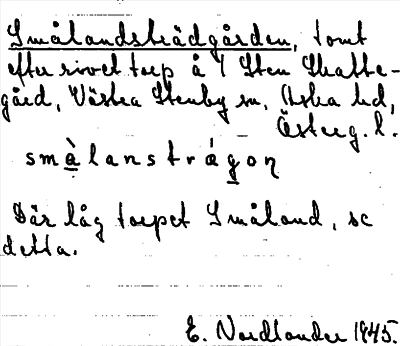 Smålandsträdgården, tomt
efter rivet torp å 1 Sten Skatte-
gård, Västra Stenby sn, Aska hd,
Österg. l.
smàlanstrágoꞃ
Där låg torpet Småland, se
detta.
E. Nordlander 1945.